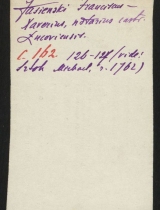 Jasienski Franciscus –
Xaverius, notarius castr.
Lucoviensis.
c. 162 126-127 (vide:
Szłok Michael, r. 1762)